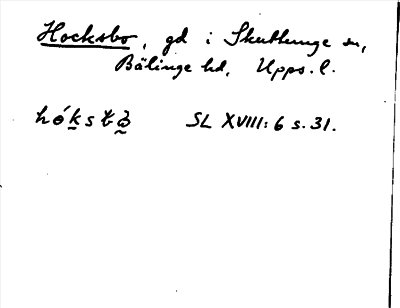 Hocksbo, gd i Skuttunge sn,
Bälinge hd, Upps. l.
SL XVIII:6 s. 31.